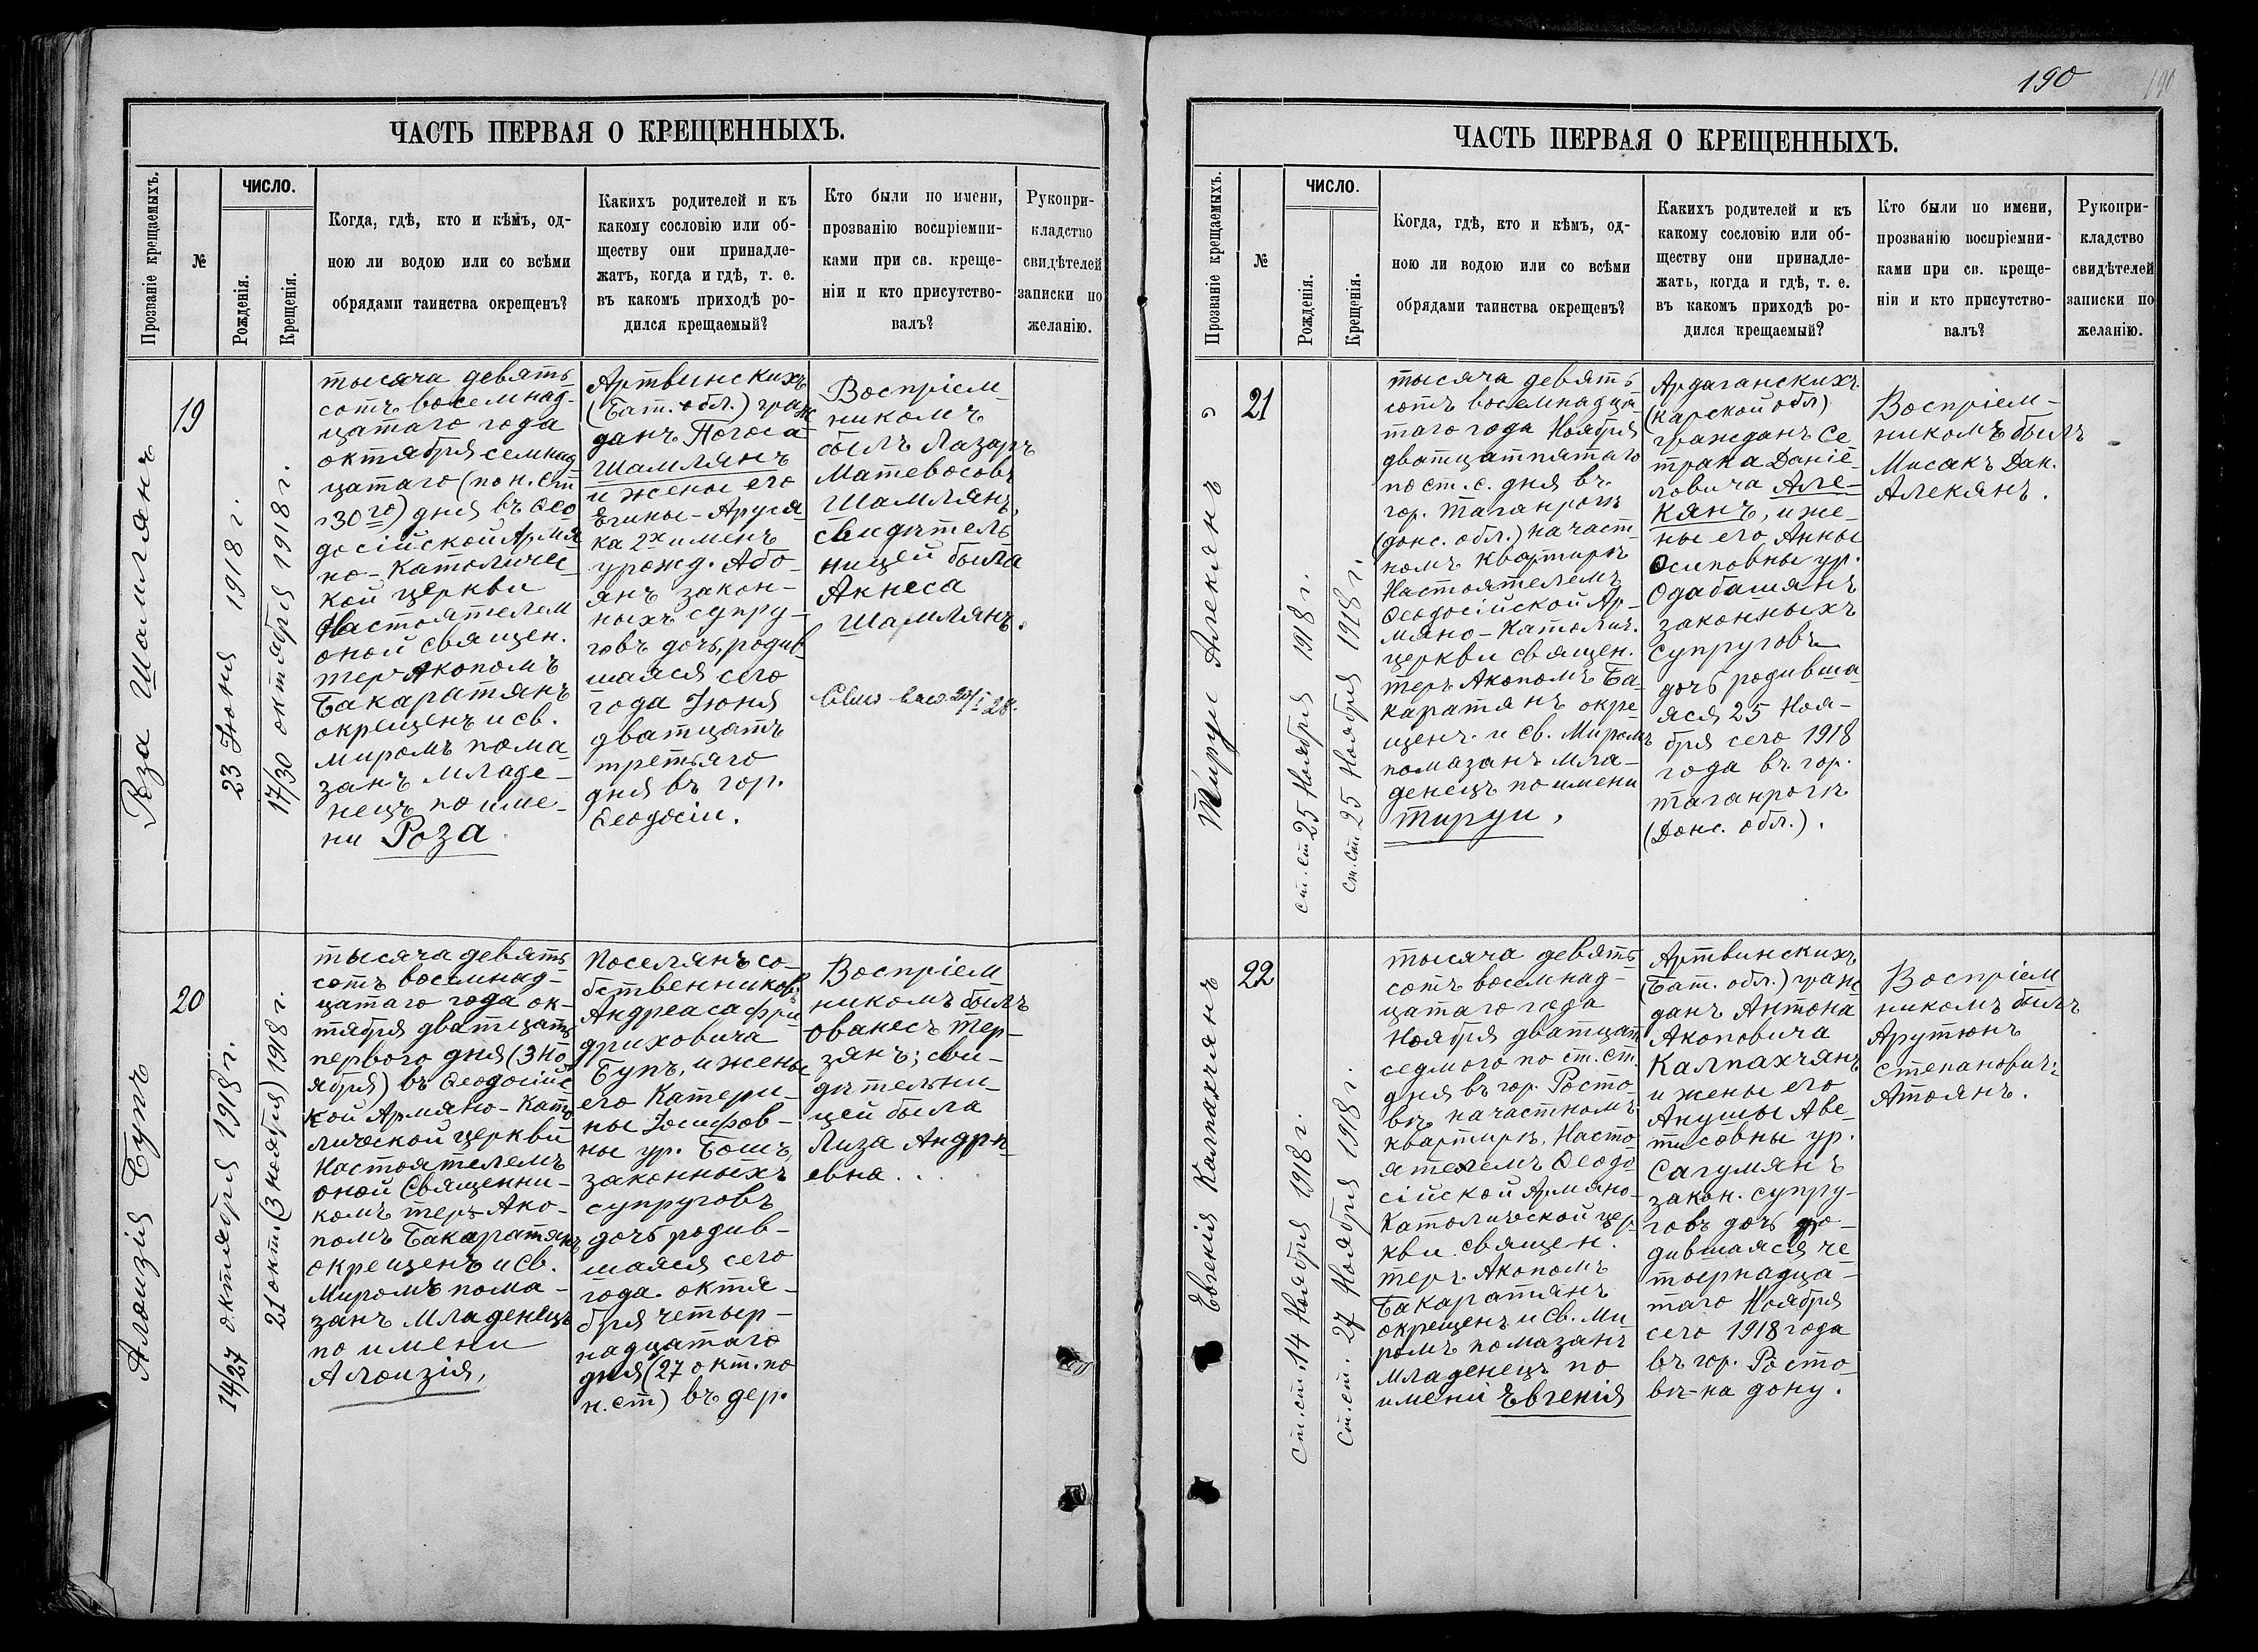 190
ЧАСТЬ ПЕРВАЯ О КРЕЩЕННЫХЪ.
Прозваніе крещаемыхъ.
№
ЧИСЛО.
Рожденія.
Крещенія.
Когда, гдѣ, кто и кѣмъ, од-
ною ли водою или со всѣми
обрядами таинства окрещенъ?
Какихъ родителей и къ
какому сословію или об-
ществу они принадле-
жатъ, когда и гдѣ, т. е.
въ какомъ приходѣ ро-
дился крещаемый?
Кто были по имени,
прозванію воспріемни-
ками при св. креще-
ніи и кто присутство-
валъ?
Рукопри-
кладство
свидѣтелей
записки по
желанію.
Роза Шамлянъ
19
23 Іюня 1918 г.
17/30 октября 1918 г.
тысяча девять
сотъ восемнад-
цатаго года
октября семнад
цатаго (по н. ст
30го) дня въ Ѳео
досійской Армя
но-Католичес-
кой церкви
Настоятелем
оной священ.
теръ Акопомъ
Бакаратянъ
окрещенъ и св.
миромъ пома
занъ младе-
нецъ по име-
ни Роза.
Артвинскихъ
(Бат. обл.) граж
данъ Погоса
Шамлянъ
и жены его
Егины-Аруся
ка 2х именъ
урожд. Або-
янъ закон-
ныхъ супру-
говъ дочь, родив
шаяся сего
года Іюня
дватцать
третьяго
дня въ гор.
Ѳеодосіи.
Воспріем
никомъ
былъ Лазаръ
Матевосовъ
Шамлянъ,
свидѣтель
ницей была
Акнеса
Шамлянъ.
Алоизія Бупъ
20
14/27 октября 1918 г.
21 окт. (3 ноября) 1918 г.
тысяча девять
сотъ восемнад-
цатаго года ок-
тября дватцать
перваго дня (3 Но
ября) въ Ѳеодосійс
кой Армяно-Като
лической церкви
Настоятелемъ
оной Священни-
комъ теръ-Ако-
помъ Бакаратянъ
окрещенъ и св.
Миромъ пома-
занъ Младенецъ
по имени
Алоизія,
Поселянъ со-
бственниковъ
Андреаса Фри
дриховича
Бупъ, и жены
его Катери-
ны Іосифов-
ны ур. Бошъ,
законныхъ
супруговъ
дочь родив-
шаяся сего
года октя-
бря четыр-
надцатаго
дня (27 окт. по
н. ст) въ дер.
Воспріем
никомъ былъ
Ованесъ Тер-
зянъ; сви-
дѣтельни-
цей была
Лиза Андрѣ
евна . .
ЧАСТЬ ПЕРВАЯ О КРЕЩЕННЫХЪ.
Прозваніе крещаемыхъ.
№
ЧИСЛО.
Рожденія.
Крещенія.
Когда, гдѣ, кто и кѣмъ, од-
ною ли водою или со всѣми
обрядами таинства окрещенъ?
Какихъ родителей и къ
какому сословію или об-
ществу они принадле-
жатъ, когда и гдѣ, т. е.
въ какомъ приходѣ ро-
дился крещаемый?
Кто были по имени,
прозванію воспріемни-
ками при св. креще-
ніи и кто присутство-
валъ?
Рукопри-
кладство
свидѣтелей
записки по
желанію.
Тируи Алекянъ
21
ст. ст. 25 Ноября 1918 г.
ст. ст. 25 Ноября 1918 г.
тысяча девять
сотъ восемнадца-
таго года Ноября
дватцатпятаго
по ст. с. дня въ
гор. Таганрогѣ
(донс. обл.) на част
номъ квартирѣ
Настоятелемъ
Ѳеодосійской Ар-
мяно-Католич.
церкви священ.
теръ Акопомъ Ба-
каратянъ окре-
щенъ и св. Миромъ
помазанъ мла-
денецъ по имени
Тируи,
Ардаганскихъ
(карской обл)
гражданъ Се
трака Даніе-
ловича Але-
кянъ, и же-
ны его Анны
Осиповны ур.
Одабашянъ
законныхъ
супруговъ
дочь родивша-
яся 25 Ноя-
бря сего 1918
года въ гор.
Таганрогѣ
(Донс. обл.).
Воспріем-
никомъ былъ
Мисакъ Дан.
Алекянъ.
Евгенія Калпахчянъ
22
ст. ст. 14 Ноября 1918 г.
ст. ст. 27 Ноября 1918 г.
тысяча девять
сотъ восемнад-
цатаго года
Ноября дватцат
седмого по ст. ст.
дня въ гор. Росто-
вѣ на частномъ
квартирѣ, Насто
ятелемъ Ѳеодо
сійской Армяно-
Католической цер-
кви священ.
теръ Акопомъ
Бакаратянъ
окрещенъ и св. Ми
ромъ помазанъ
младенецъ по
имени Евгенія
Артвинскихъ
(Бат. обл.) граж
данъ Антона
Акоповича
Калпахчянъ
и жены его
Анушы Аве-
тисовны ур.
Сагумянъ
закон. супру-
говъ дочь ро-
дившаяся че
тоернадца-
таго Ноября
сего 1918 года
въ гор. Росто-
вѣ-на дону.
Воспріем
никомъ былъ
Арутюнъ
Степановичъ
Атоянъ.